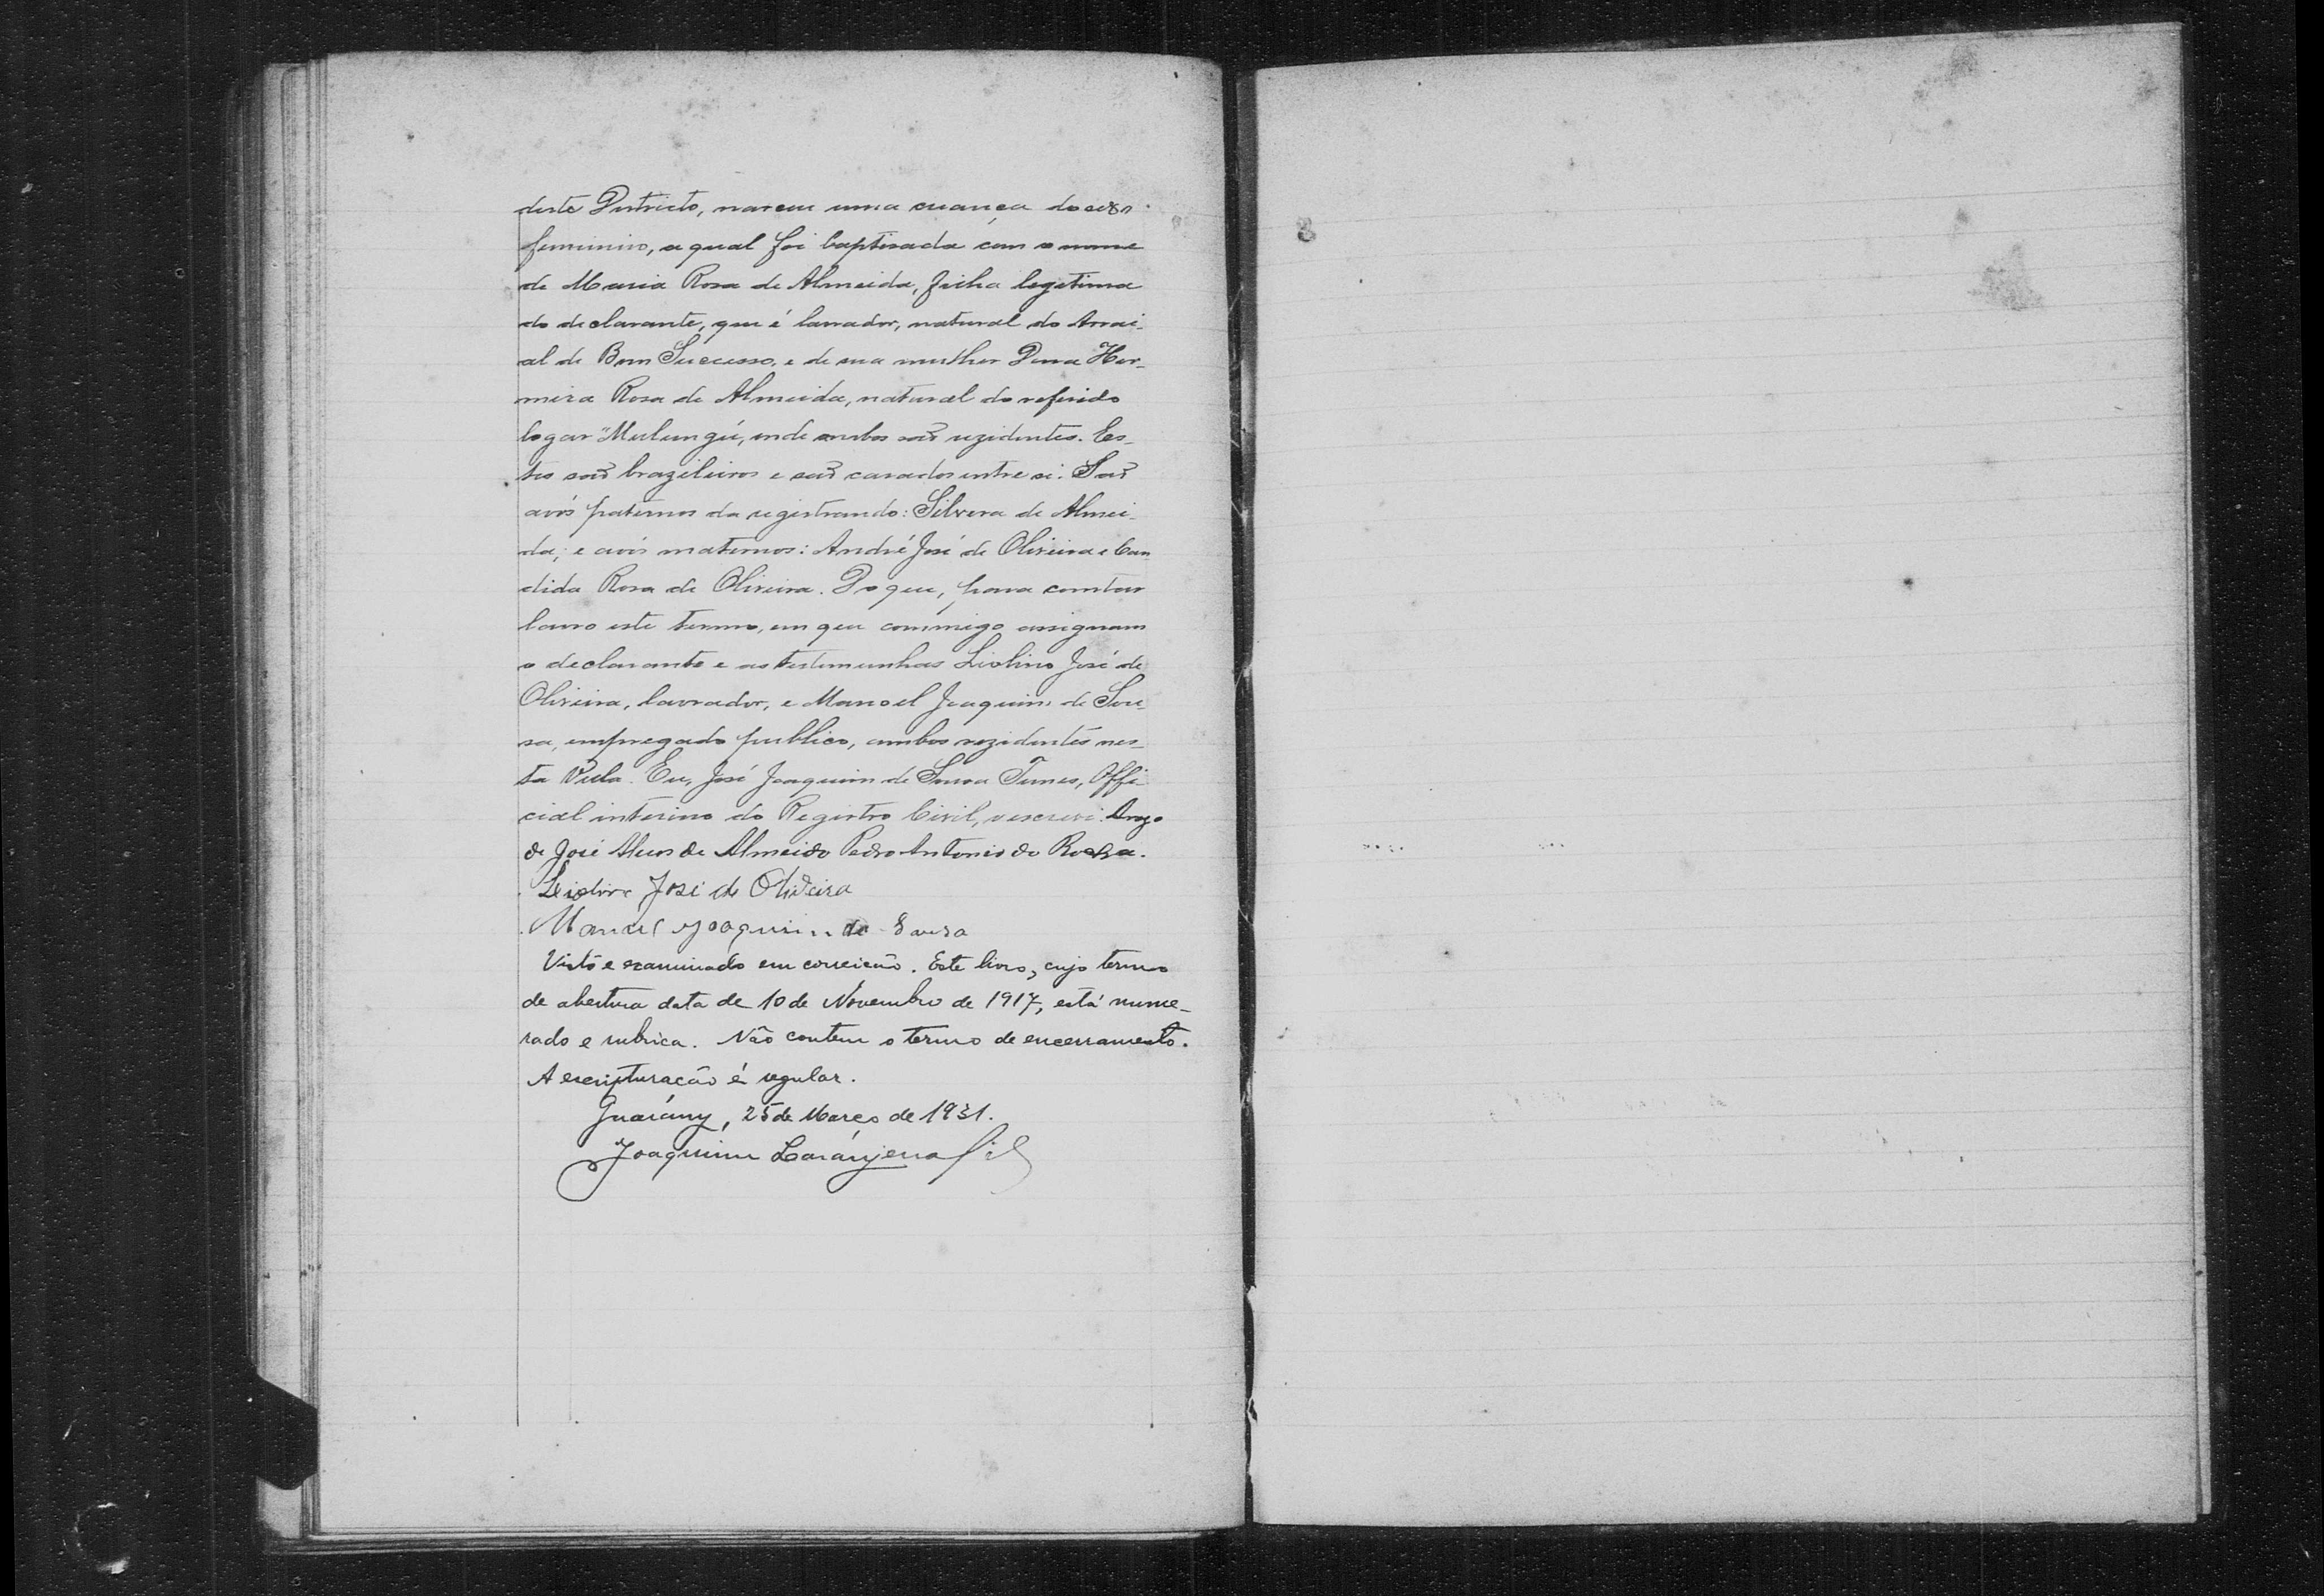 deste Districto, nasceu uma creança do sexo
feminino, a qual foi baptisada com o nome
de Maria Rosa de Almeida, filha legitima
do declarante, que é lavrador, natural do Arrai-
al de Bom Successo, e de sua mulher Dona Her-
mira Rosa de Almeida, natural do referido
logar "Mulungú, onde ambos são rezidentes. Es-
tes são brazileiros e são casados entre si. São
avós paternos da registrando: Silvera de Almei-
da; e avós maternos: André José de Oliveira e Can
dida Rosa de Oliveira. Do que, para constar
lavro este termo, em que commigo assignam
o declarante e as testemunhas Liolino José de
Oliveira, lavrador, e Manoel Joaquim de Sou-
sa, empregado publico, ambos rezidentes nes-
ta Villa. Eu, José Joaquim de Sousa Tunes, Offi-
cial interino do Registro Civil, o escrevi. Arogo
de José Alves de Almeida Pedro Antonio da Rocha.
José de Oliveira
Manuel Joaquim de Sousa
Visto e examinado em correição. Este livro, cujo termo
de abertura data de 10 de Novembro de 1917, está nume-
rado e rubrica. Não contem o termo de encerramento.
A escripturação é regular.
Guarány, 25 de Março de 1931.
Joaquim Laranjeira